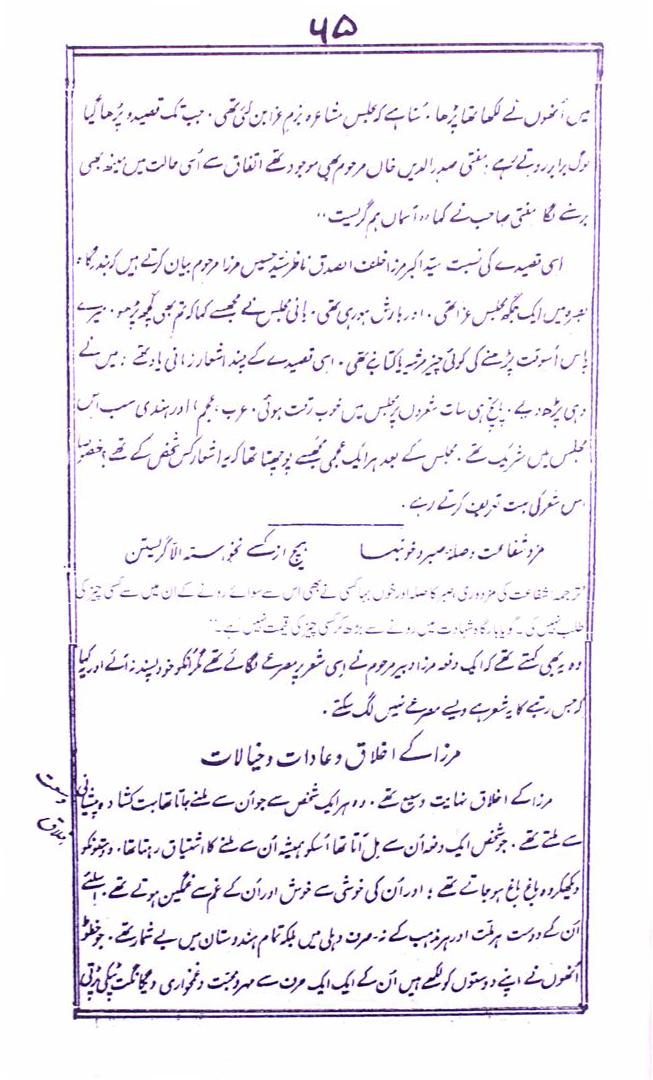 ۶۵
میں اُنھوں نے لکھا تھا پڑھا۔ سُنا ہے کہ مجلس مشاعرہ بزمِ عزا بن گئی تھی۔ جب تک قصیدہ پڑھا گیا
لوگ برابر روتے رہے۔ مفتی صدرالدین خاں مرحوم بھی موجود تھے اتفاق سے اُسی حالت میں مینھ بھی
برسنے لگا مفتی صاحب نے کہا "آسماں ہم گریست"
اسی قصیدے کی نسبت سید اکبر مرزا خلف الصدق ناظر سید حسین مرزا مرحوم بیان کرتے ہیں کہ بندرگاہ
بصرہ میں ایک جگہ مجلس عزا تھی۔ اور بارش ہو رہی تھی۔ بانیِ مجلس نے مجھسے کہا کہ تم بھی کچھ پڑھو۔ میرے
پاس اُسوقت پڑھنے کی کوئی چیز مرثیہ یا کتاب نہ تھی۔ اسی قصیدے کے چند اشعار زبانی یاد تھے؛ میں نے
وہی پڑھ دیے۔ پانچ ہی سات شعروں پر مجلس میں خوب رقت ہوئی، عرب، عجم، اور ہندی سب اُس
مجلس میں شریک تھے۔ مجلس کے بعد ہر ایک عجمی مجھسے پوچھتا تھا کہ یہ اشعار کس شخص کے تھے؟ خصوصاً
اس شعر کی بہت تعریف کرتے رہے۔
مزد شفاعت و صلۂ صبر و خونبہا ہیچ از کسے نخواستہ الّا گریستن
"ترجمہ: شفاعت کی مزدوری، صبر کا صلہ اور خوں بہا کسی نے بھی اس سے سوائے رونے کے ان میں سے کسی چیز کی
طلب نہیں کی۔ گویا بارگاہ شہادت میں رونے سے بڑھ کر کسی چیز کی قیمت نہیں ہے۔"
وہ یہ بھی کہتے تھے کہ ایک دفعہ مرزا دبیر مرحوم نے اسی شعر پر مصرعے لگائے تھے مگر انکو خود پسند نہ آئے اور کہا
کہ جس رتبے کا یہ شعر ہے ویسے مصرعے نہیں لگ سکتے۔
مرزا کے اخلاق و عادات و خیالات
وسعت اخلاق
مرزا کے اخلاق نہایت وسیع تھے۔ وہ ہر ایک شخص سے جو اُن سے ملنے جاتا تھا بہت کشادہ پیشانی
سے ملتے تھے۔ جو شخص ایک دفعہ اُن سے مل آتا تھا اُسکو ہمیشہ اُن سے ملنے کا اشتیاق رہتا تھا۔ دوستونکو
دیکھکر وہ باغ باغ ہو جاتے تھے؛ اور اُن کی خوشی سے خوش اور اُن کے غم سے غمگین ہوتے تھے۔ اسلئے
اُن کے دوست ہر ملّت اور ہر مذہب کے نہ صرف دہلی میں بلکہ تمام ہندوستان میں بے شمار تھے۔ جو خطوط
اُنھوں نے اپنے دوستوں کو لکھے ہیں اُن کے ایک ایک حرف سے مہر و محبت و غمخواری و یگانگت ٹپکی پڑتی